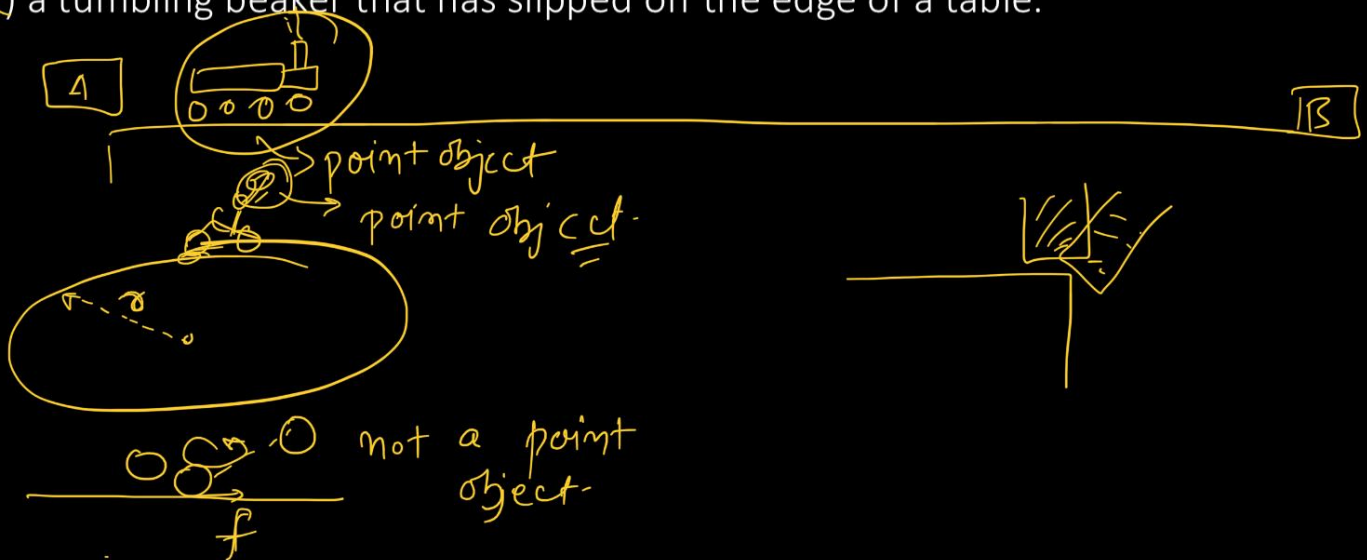 ) a tumbling beaker that has slipped off the edge of a table.
A
B
point object
point object.
r
not a point
object.
f